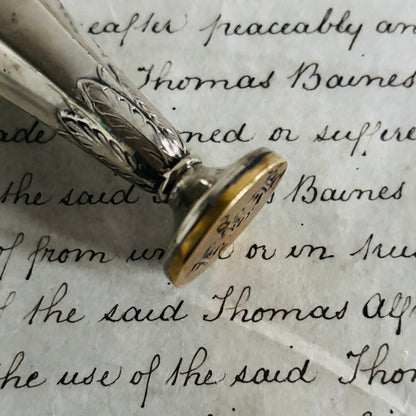 eafter peaceably an
Thomas Baines
ade ned or suffere
the said Baines
of from un or in trus
f the said Thomas Alf
the use of the said Tho